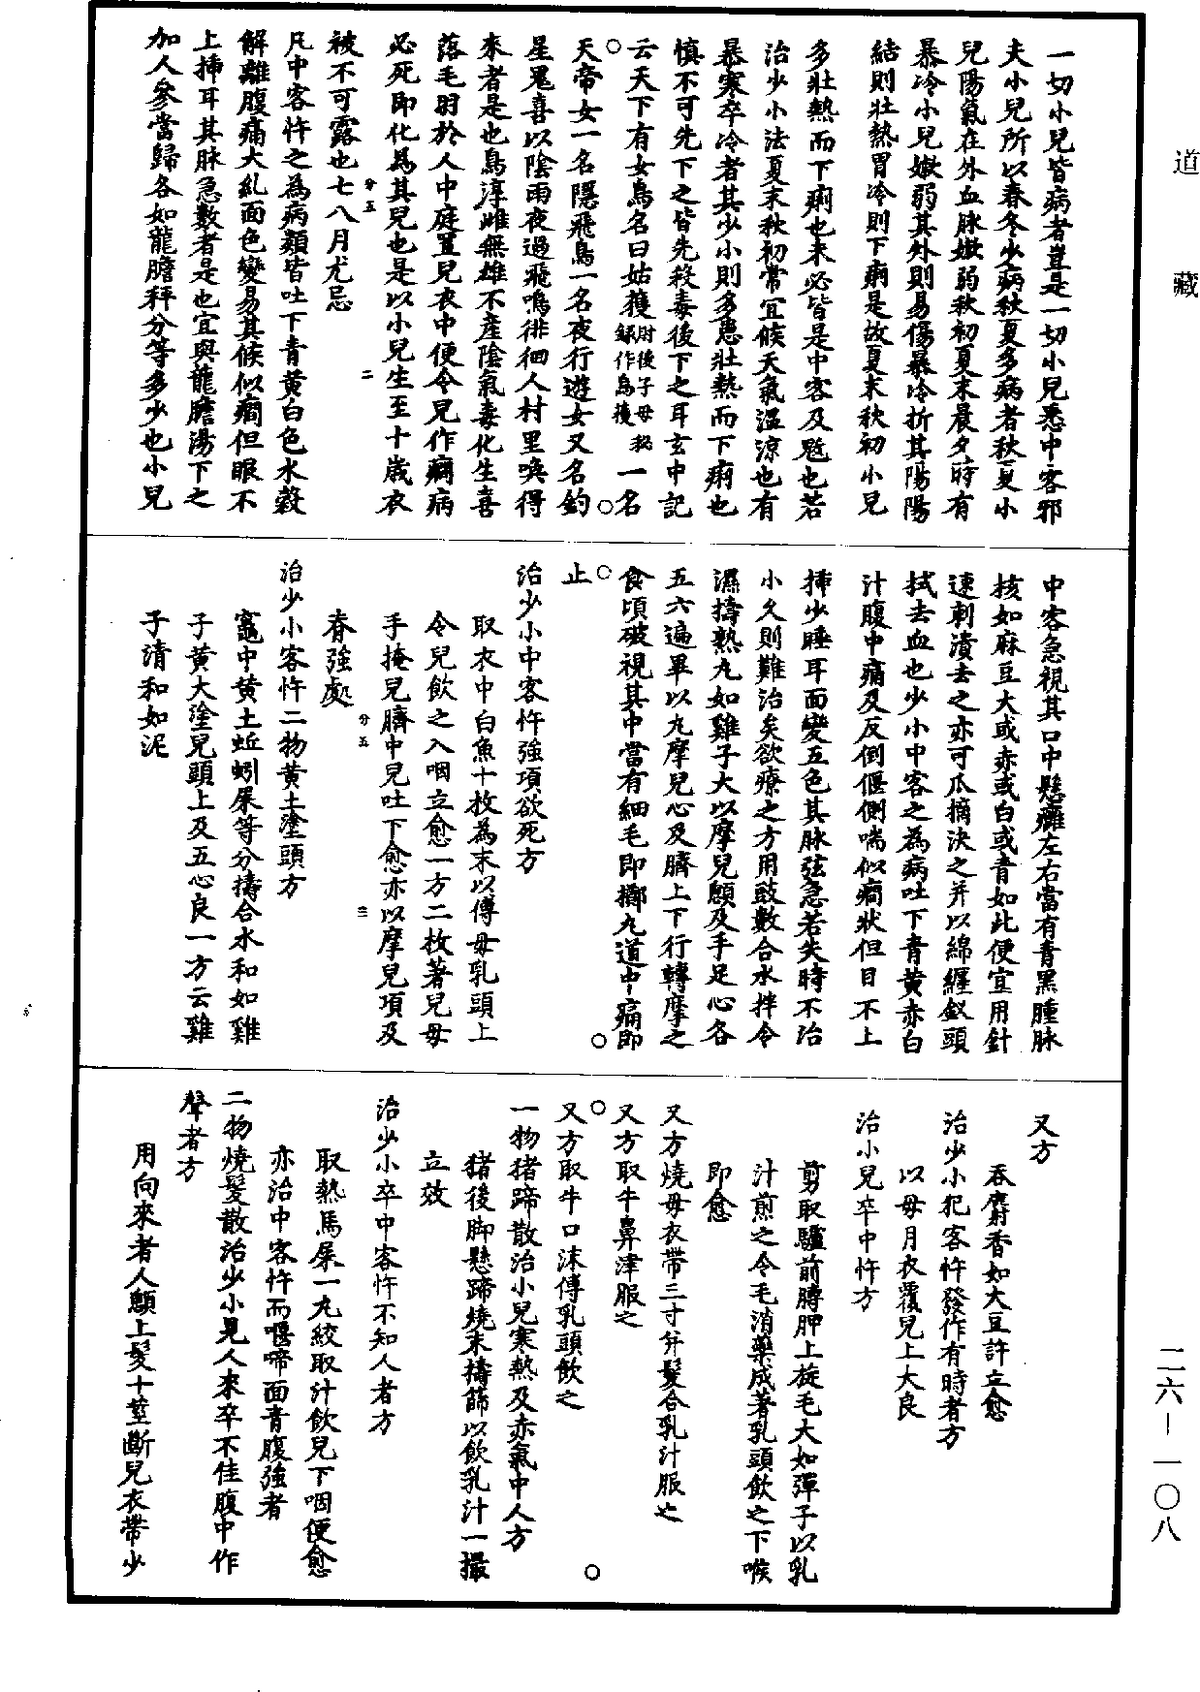 道藏
一切小兒皆病者豈是一切小兒悉中客邪
夫小兒所以春冬少病秋夏多病者秋夏小
兒陽氣在外血脉嫩弱秋初夏末晨夕時有
暴冷小兒嫩弱其外則易傷暴冷折其陽陽
結則壯熱胃冷則下痢是故夏末秋初小兒
多壯熱而下痢也未必皆是中客及鬾也若
治少小法夏末秋初常宜候天氣溫涼也有
暴寒卒冷者其少小則多患壯熱而下痢也
慎不可先下之皆先殺毒後下之耳玄中記
云天下有女鳥名曰姑獲肘後子母秘錄作烏獲一名
天帝女一名隱飛鳥一名夜行遊女又名釣
星鬼喜以陰雨夜過飛鳴徘徊人村里喚得
來者是也鳥淳雌無雄不產陰氣毒化生喜
落毛羽於人中庭置兒衣中便令兒作癇病
必死即化為其兒也是以小兒生至十歲衣
被不可露也七八月尤忌
凡中客忤之為病類皆吐下青黃白色水穀
解離腹痛大乱面色變易其候似癇但眼不
上揷耳其脉急數者是也宜與龍膽湯下之
加人參當歸各如龍膽秤分等多少也小兒
分五
二
中客急視其口中懸癰左右當有青黑腫脉
核如麻豆大或赤或白或青如此便宜用針
速刺潰去之亦可爪摘決之并以綿纏釵頭
拭去血也少小中客之為病吐下青黃赤白
汁腹中痛及反倒偃側喘似癇狀但目不上
揷少睡耳面變五色其脉弦急若失時不治
小久則難治矣欲療之方用豉數合水拌令
濕擣熟丸如雞子大以摩兒顖及手足心各
五六遍畢以丸摩兒心及臍上下行轉摩之
食頃破視其中當有細毛即擲丸道中痛即
止
治少小中客忤強項欲死方
取衣中白魚十枚為末以傅母乳頭上
令兒飲之入咽立愈一方二枚著兒母
手掩兒臍中兒吐下愈亦以摩兒項及
脊強處
分五
三
治少小客忤二物黃土塗頭方
竈中黃土蚯蚓屎等分擣合水和如雞
子黃大塗兒頭上及五心良一方云雞
子清和如泥
又方
吞麝香如大豆許立愈
治少小犯客忤發作有時者方
以母月衣覆兒上大良
治小兒卒中忤方
剪取驢前膊胛上旋毛大如彈子以乳
汁煎之令毛消藥成著乳頭飲之下喉
即愈
又方燒母衣帶三寸并髮合乳汁服之
又方取牛鼻津服之
又方取牛口沫傅乳頭飲之
一物猪蹄散治小兒寒熱及赤氣中人方
猪後脚懸蹄燒末擣篩以飲乳汁一撮
立效
治少小卒中客忤不知人者方
取熱馬屎一丸絞取汁飲兒下咽便愈
亦治中客忤而偃啼面青腹強者
二物燒髮散治少小見人來卒不佳腹中作
聲者方
用向來者人顖上髮十莖斷兒衣帶少
二六－一〇八